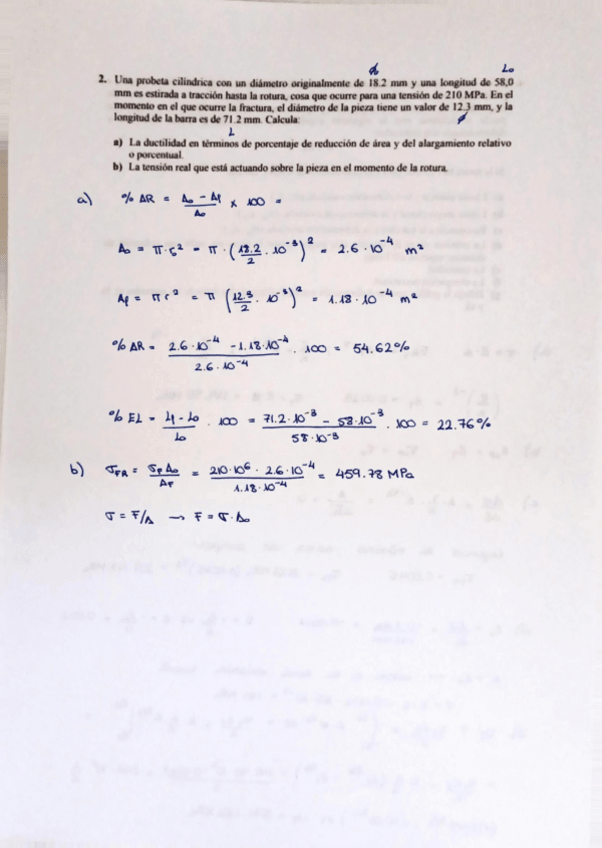 φ₀ L₀
2. Una probeta cilíndrica con un diámetro originalmente de 18.2 mm y una longitud de 58,0
mm es estirada a tracción hasta la rotura, cosa que ocurre para una tensión de 210 MPa. En el
momento en el que ocurre la fractura, el diámetro de la pieza tiene un valor de 12.3 mm, y la
longitud de la barra es de 71.2 mm. Calcula:
L φ
a) La ductilidad en términos de porcentaje de reducción de área y del alargamiento relativo
o porcentual.
b) La tensión real que está actuando sobre la pieza en el momento de la rotura.
a) % AR = (A₀ - Af)/A₀ x 100 =
A₀ = π·r² = π·(18.2/2 · 10⁻³)² = 2.6·10⁻⁴ m²
Af = πr² = π(12.3/2 · 10⁻³)² = 1.18·10⁻⁴ m²
% AR = (2.6·10⁻⁴ - 1.18·10⁻⁴)/(2.6·10⁻⁴) · 100 = 54.62%
% EL = (Lf - L₀)/L₀ · 100 = (71.2·10⁻³ - 58·10⁻³)/(58·10⁻³) · 100 = 22.76%
b) σFR = (σF A₀)/AF = (210·10⁶ · 2.6·10⁻⁴)/(1.18·10⁻⁴) = 459.78 MPa
σ = F/A → F = σ·A₀